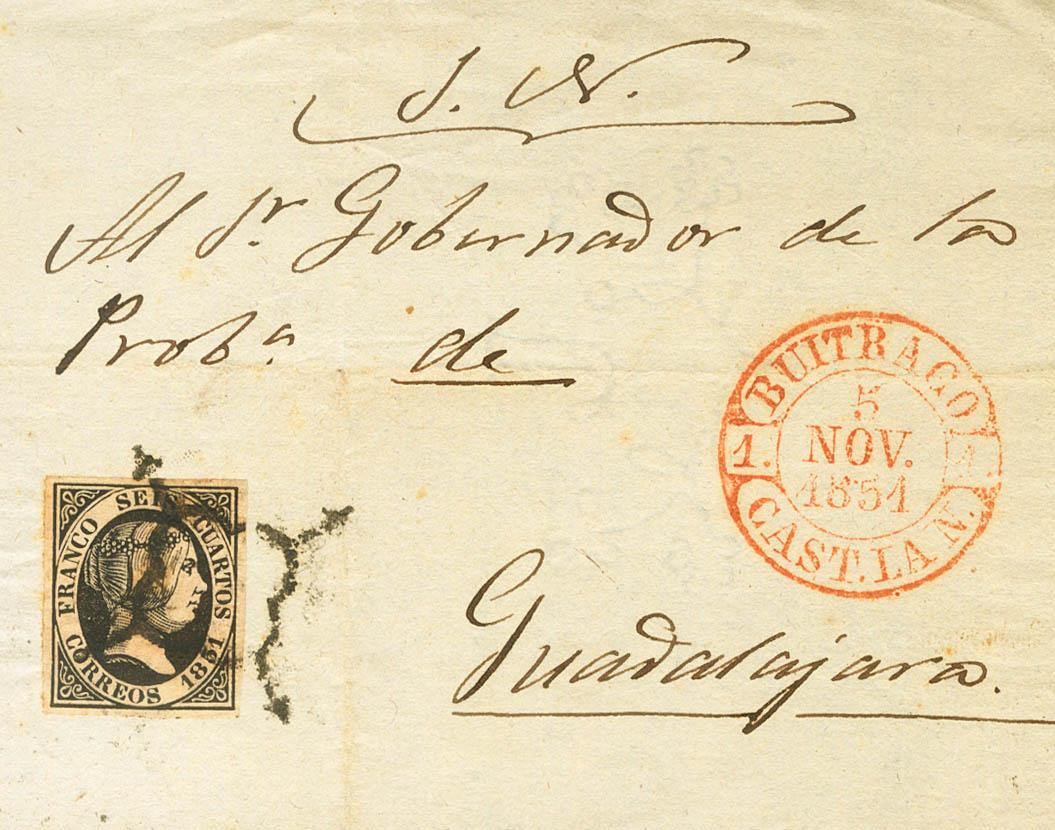 S. N.
Al Sr. Gobernador de la
Proba. de
Guadalajara.
BUITRAGO
5
NOV.
1851
1. 1.
CAST. LA N.
FRANCO SEIS CUARTOS
CORREOS 1851